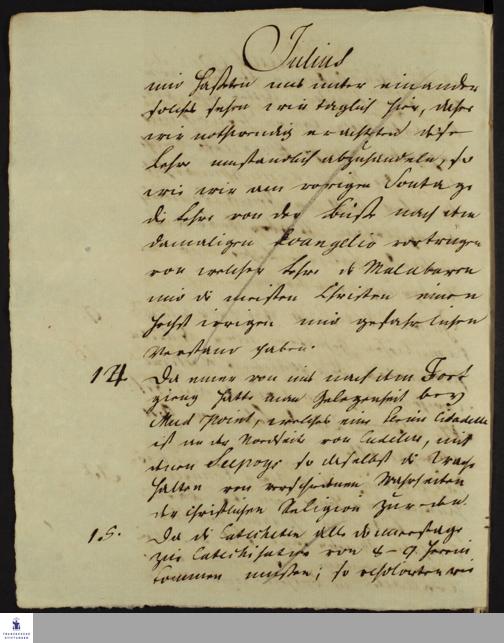 Julius
und hasseten uns unter einander
solches sehen wir täglich hier, daher
wir nothwendig erachteten diese
Lehre umständlich abzuhandeln, so
wie wir am vorigen Sontage
die Lehre von der Buße nach dem
damaligen Evangelio vortrugen
von welcher Lehre die Malabaren
und die meisten Christen einen
höchst irrigen und gefährlichen
Verstand haben.
14 Da einer von uns nach dem Fort
gieng hatte man Gelegenheit bey
Mud point, welches eine kleine Citadelle
ist an der Nordseite von Cudelur, mit
denen Seepoys so daselbst die Wache
halten von verschiedenen Wahrheiten
der Christlichen Religion zu reden.
15. Da die Catecheten alle Donnerstage
zur Catechisation von 8-9 herein
kommen müßen; so resolvirten wir
FRANCKESCHE
STIFTUNGEN